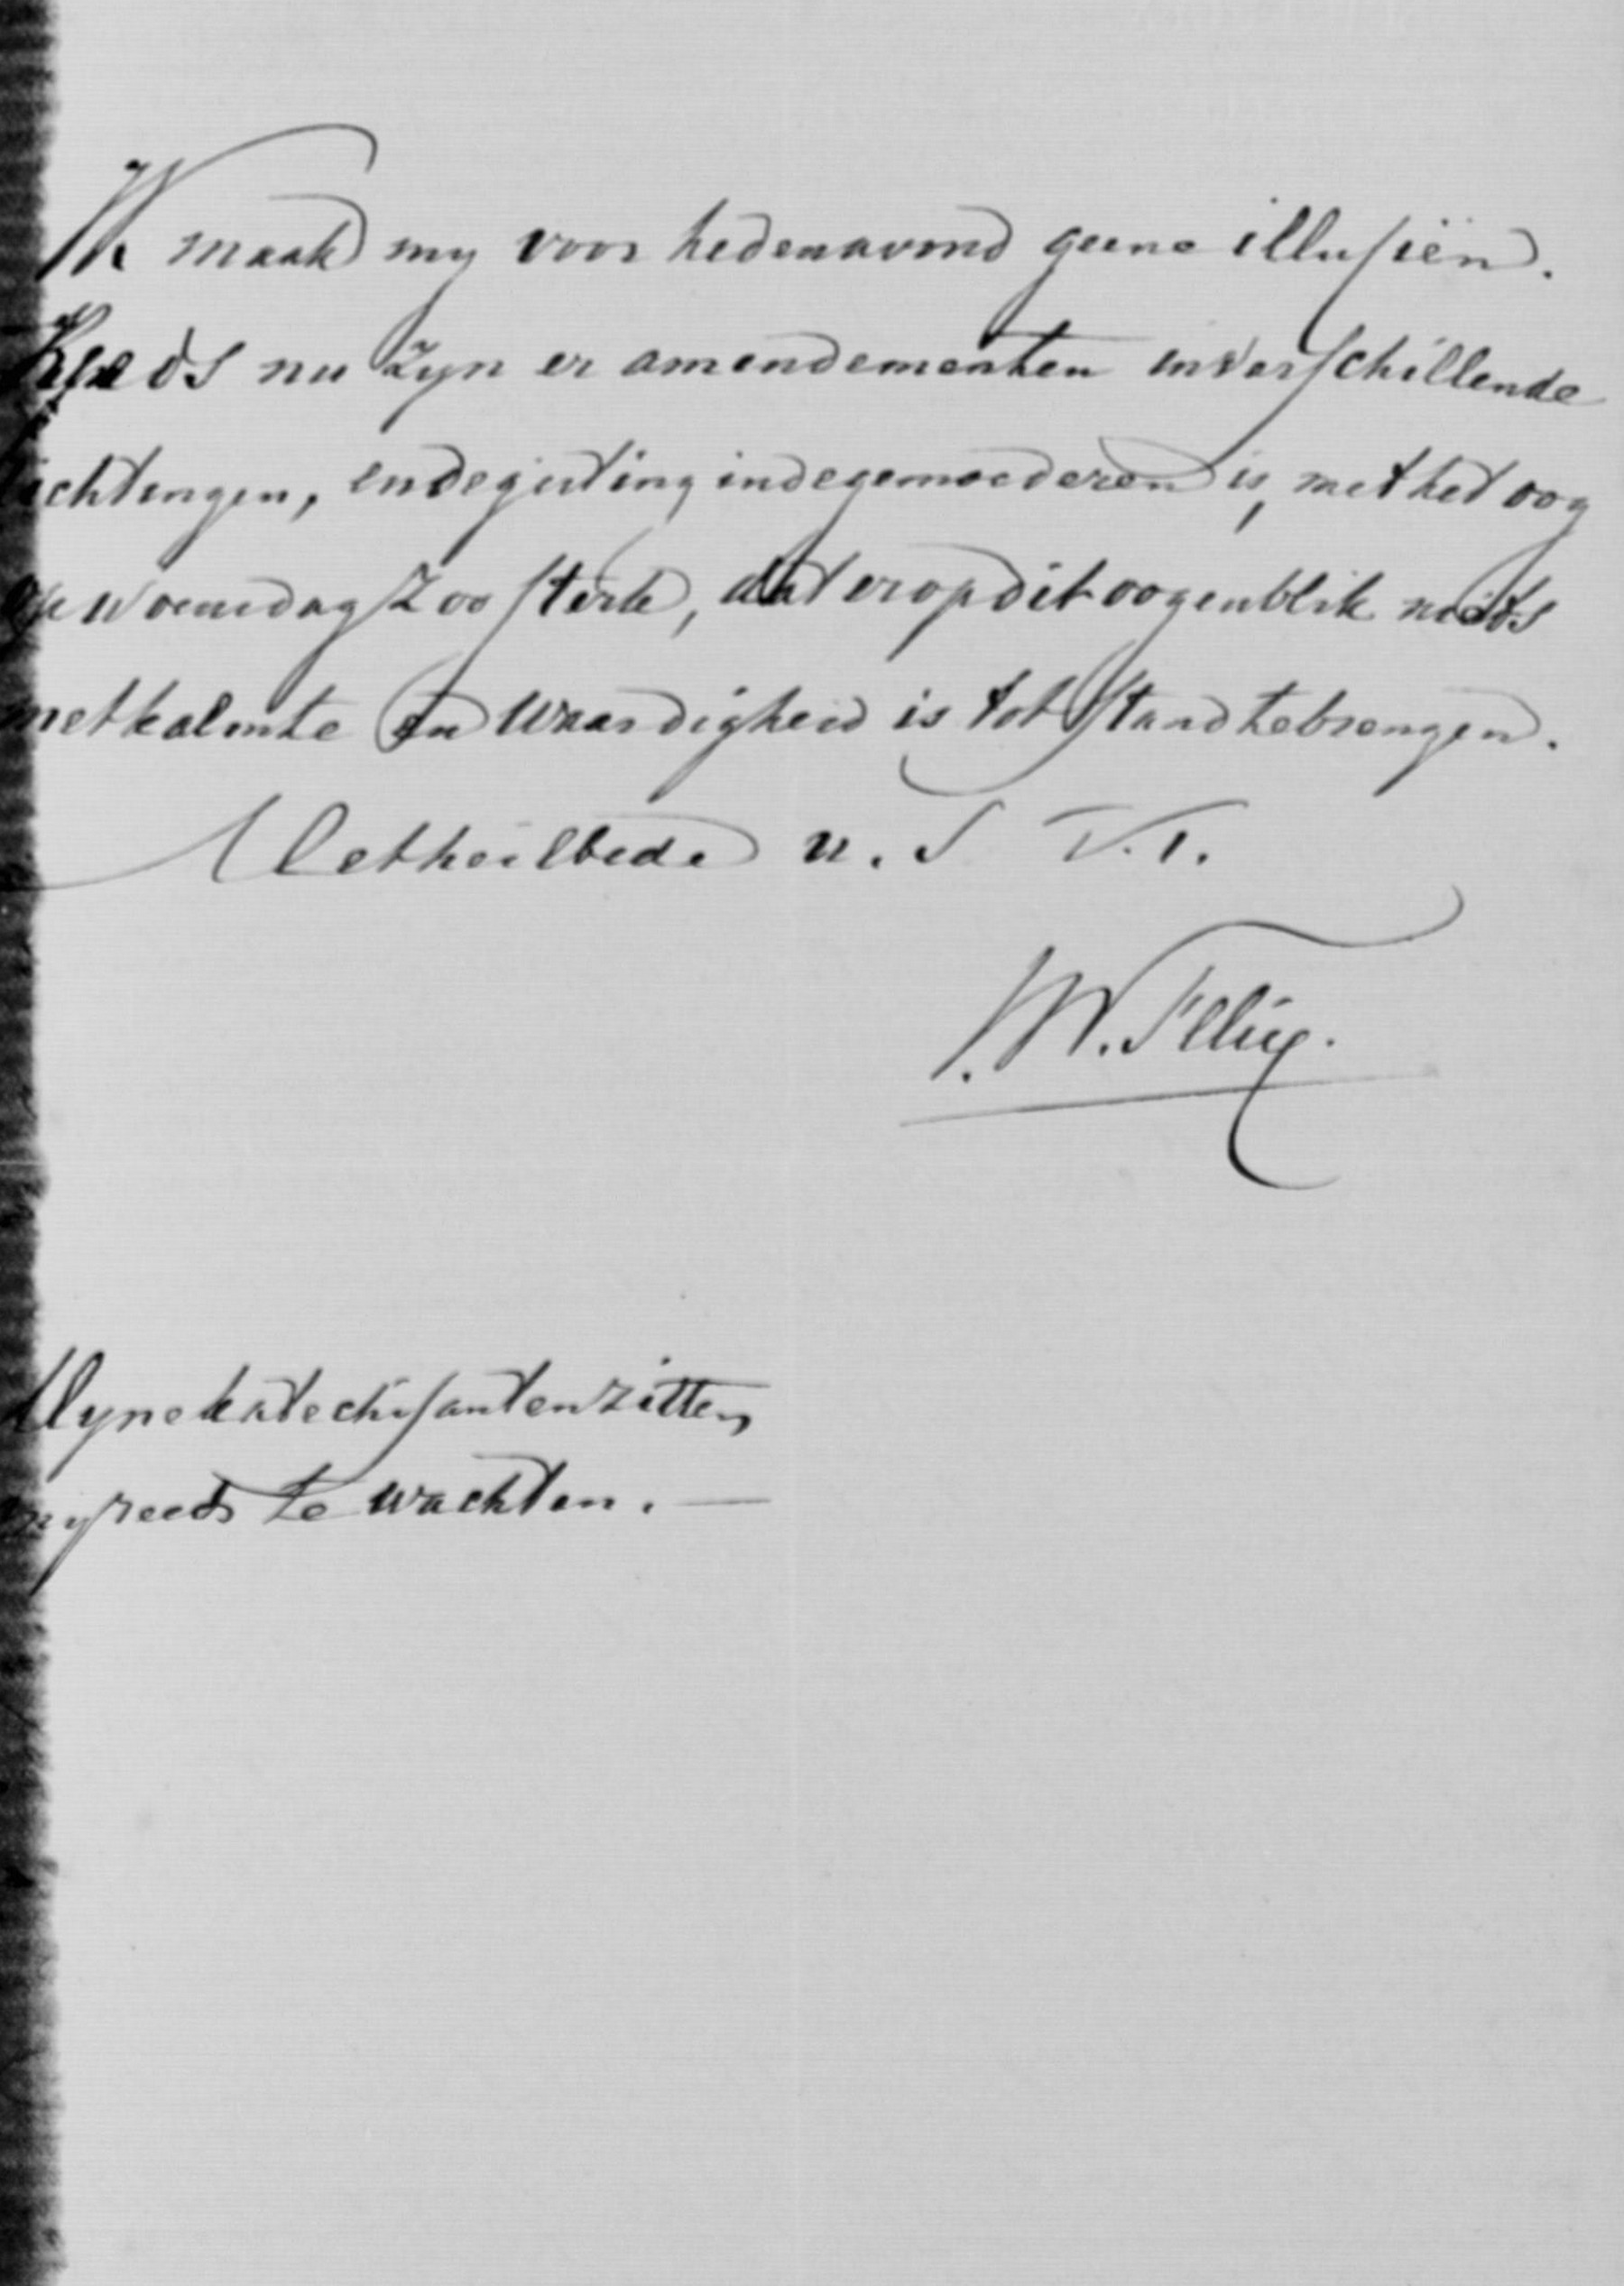 Ik maak my voor hedenavond geene illusiën.
Reeds nu zyn er amendementen in verschillende
richtingen, en de gisting in de gemoederen is, met het oog
op woensdag zoo sterk, dat er op dit oogenblik niets
met kalmte en waardigheid is tot stand te brengen.
Met heilbede u. S V.T.
Myne katechisanten zitten
my reeds te wachten. —